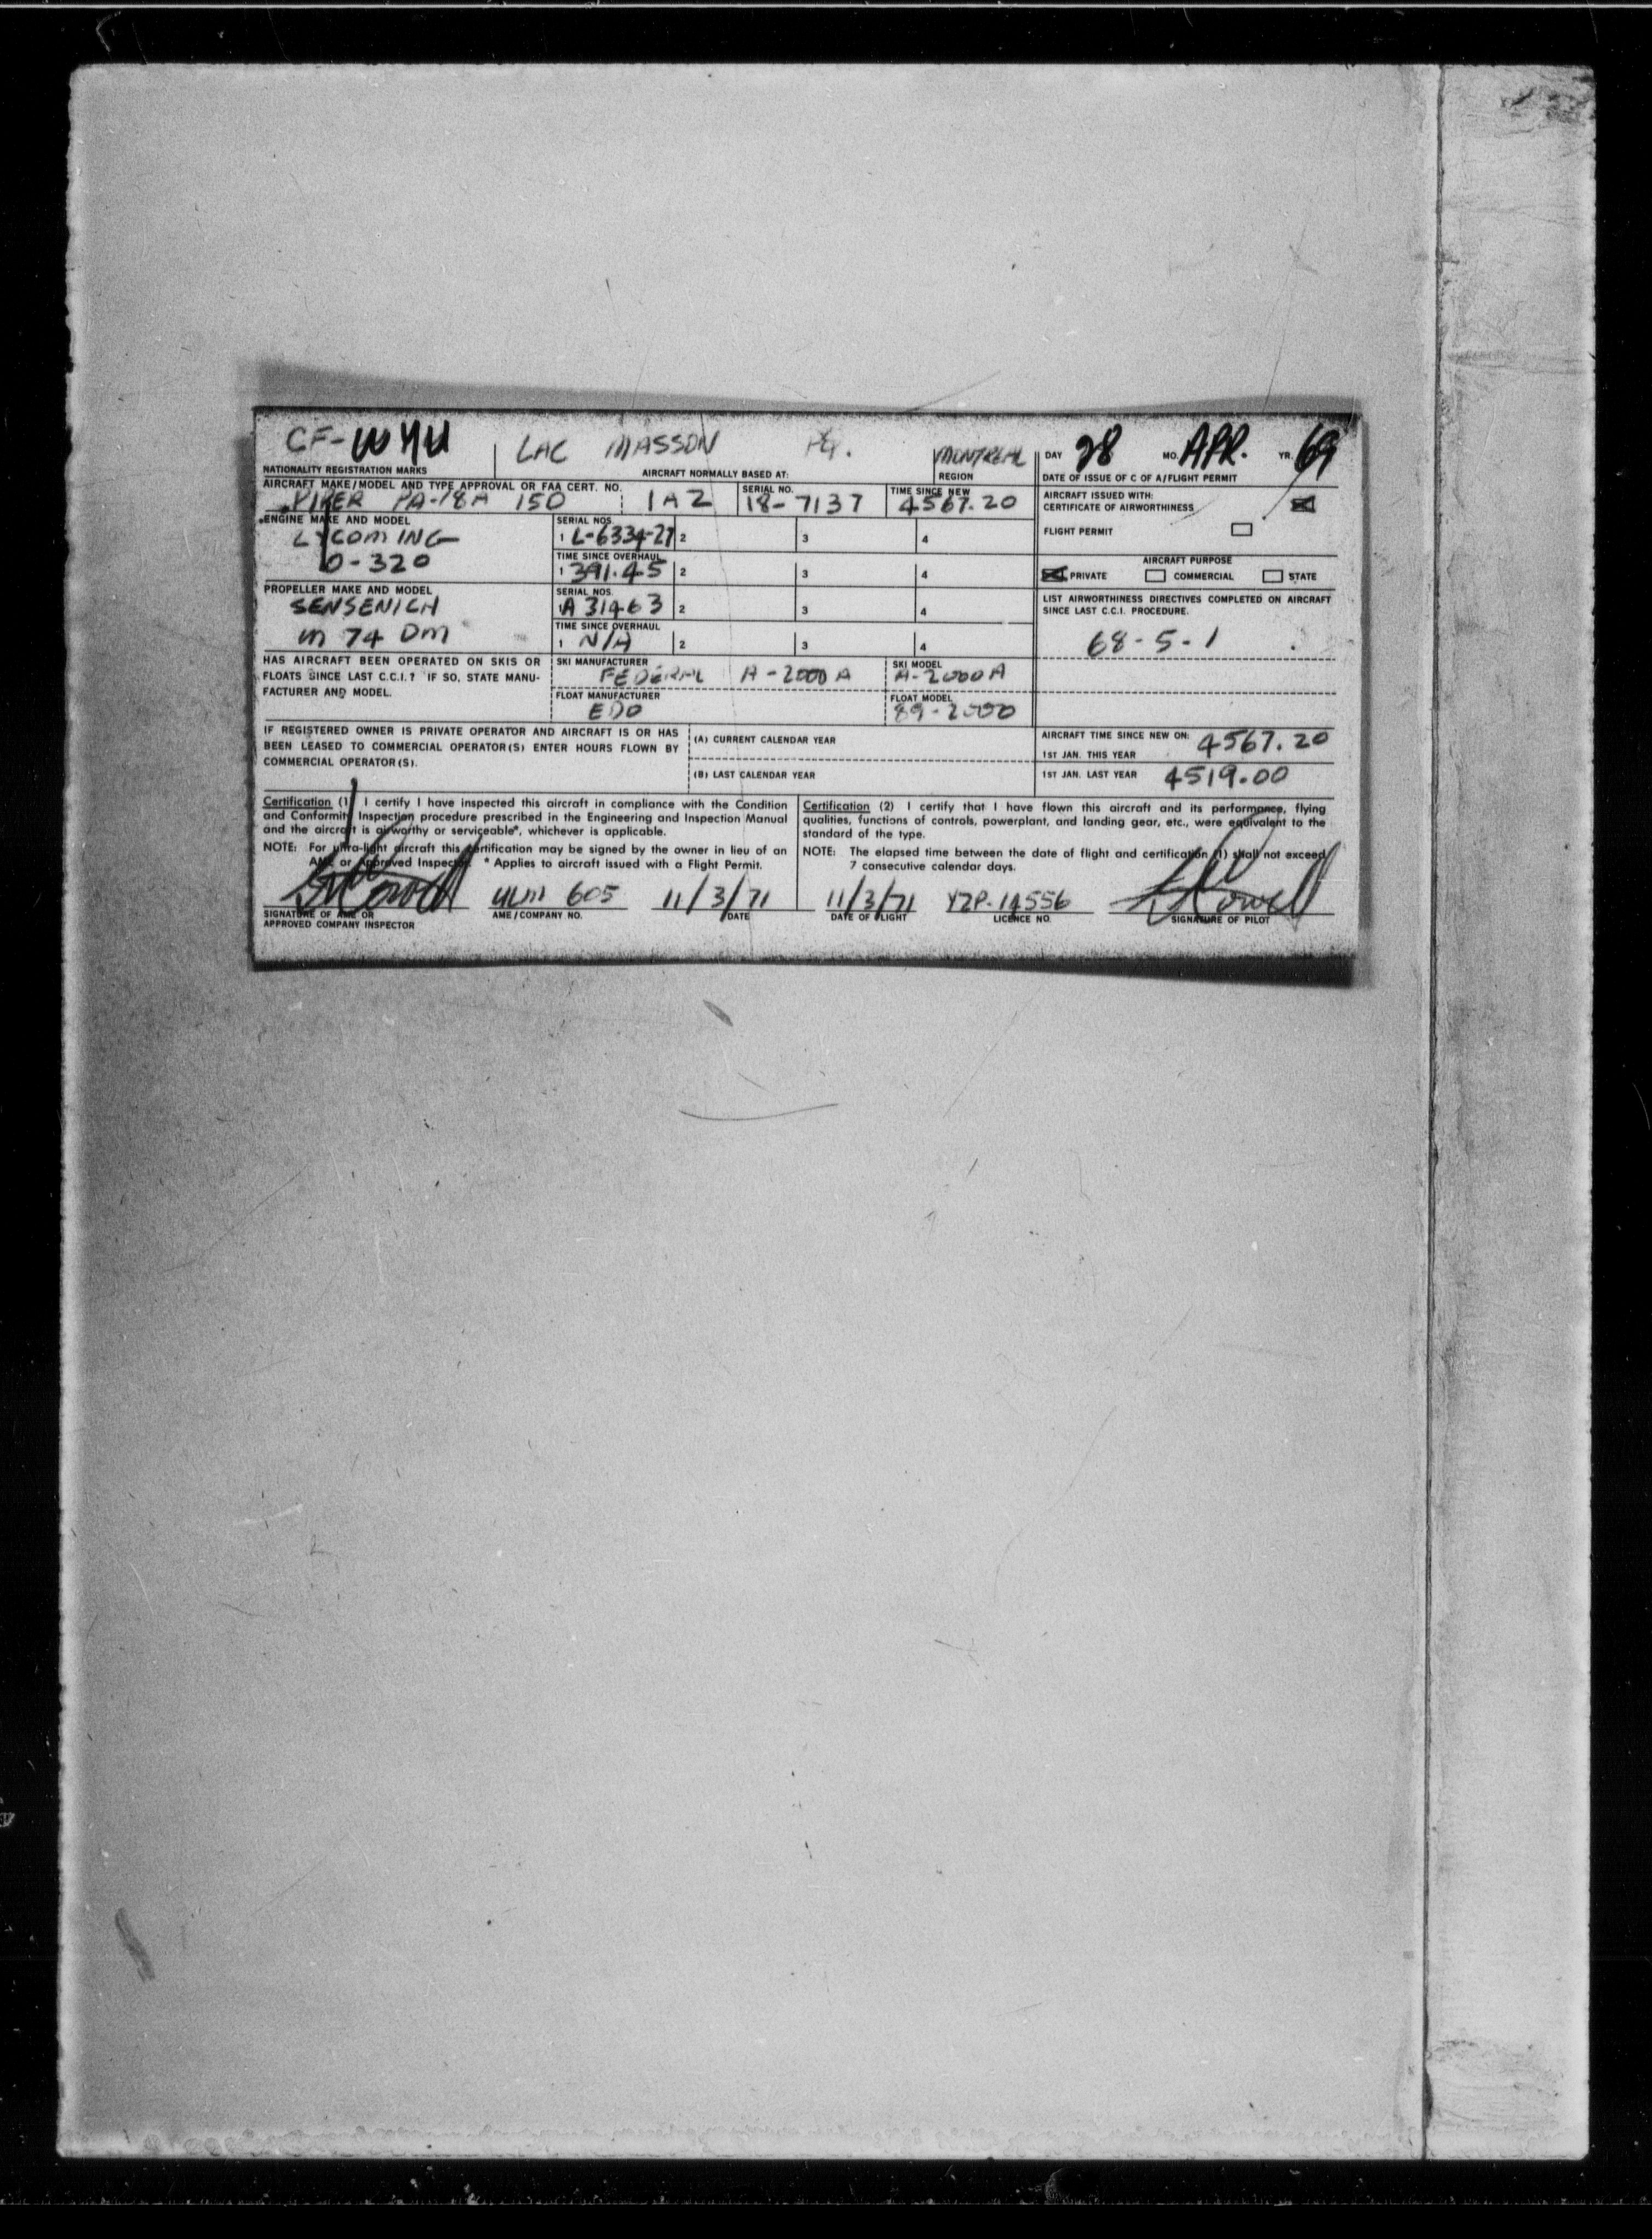 CF-WYU LAC MASSON PQ. MONTREAL DAY 28 MO. APR. YR. 69
NATIONALITY REGISTRATION MARKS AIRCRAFT NORMALLY BASED AT: REGION DATE OF ISSUE OF C OF A/FLIGHT PERMIT
AIRCRAFT MAKE/MODEL AND TYPE APPROVAL OR FAA CERT. NO. SERIAL NO. TIME SINCE NEW
PIPER PA-18A 150 1A2 18-7137 4567.20
AIRCRAFT ISSUED WITH:
CERTIFICATE OF AIRWORTHINESS
FLIGHT PERMIT
ENGINE MAKE AND MODEL SERIAL NOS.
LYCOMING 1 L-6334-27 2 3 4
TIME SINCE OVERHAUL
O-320 1 391.45 2 3 4
AIRCRAFT PURPOSE
PRIVATE COMMERCIAL STATE
PROPELLER MAKE AND MODEL SERIAL NOS.
SENSENICH 1 A 31463 2 3 4
TIME SINCE OVERHAUL
M 74 DM 1 N/A 2 3 4
LIST AIRWORTHINESS DIRECTIVES COMPLETED ON AIRCRAFT
SINCE LAST C.C.I. PROCEDURE.
68-5-1
HAS AIRCRAFT BEEN OPERATED ON SKIS OR
FLOATS SINCE LAST C.C.I.? IF SO, STATE MANU-
FACTURER AND MODEL.
SKI MANUFACTURER SKI MODEL
FEDERAL A-2000A A-2000A
FLOAT MANUFACTURER FLOAT MODEL
EDO 89-2000
IF REGISTERED OWNER IS PRIVATE OPERATOR AND AIRCRAFT IS OR HAS
BEEN LEASED TO COMMERCIAL OPERATOR(S) ENTER HOURS FLOWN BY
COMMERCIAL OPERATOR(S).
(A) CURRENT CALENDAR YEAR
(B) LAST CALENDAR YEAR
AIRCRAFT TIME SINCE NEW ON:
1ST JAN. THIS YEAR 4567.20
1ST JAN. LAST YEAR 4519.00
Certification (1) I certify I have inspected this aircraft in compliance with the Condition
and Conformity Inspection procedure prescribed in the Engineering and Inspection Manual
and the aircraft is airworthy or serviceable*, whichever is applicable.
NOTE: For ultra-light aircraft this certification may be signed by the owner in lieu of an
AME or Approved Inspector. * Applies to aircraft issued with a Flight Permit.
Certification (2) I certify that I have flown this aircraft and its performance, flying
qualities, functions of controls, powerplant, and landing gear, etc., were equivalent to the
standard of the type.
NOTE: The elapsed time between the date of flight and certification (1) shall not exceed
7 consecutive calendar days.
605 11/3/71 11/3/71 YZP-14556
SIGNATURE OF AME OR AME/COMPANY NO. DATE DATE OF FLIGHT LICENCE NO. SIGNATURE OF PILOT
APPROVED COMPANY INSPECTOR